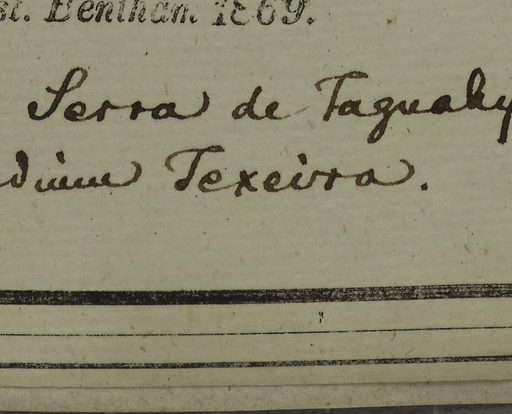 st. Bentham 1869.
Serra de Taguahy
dium Texeira.